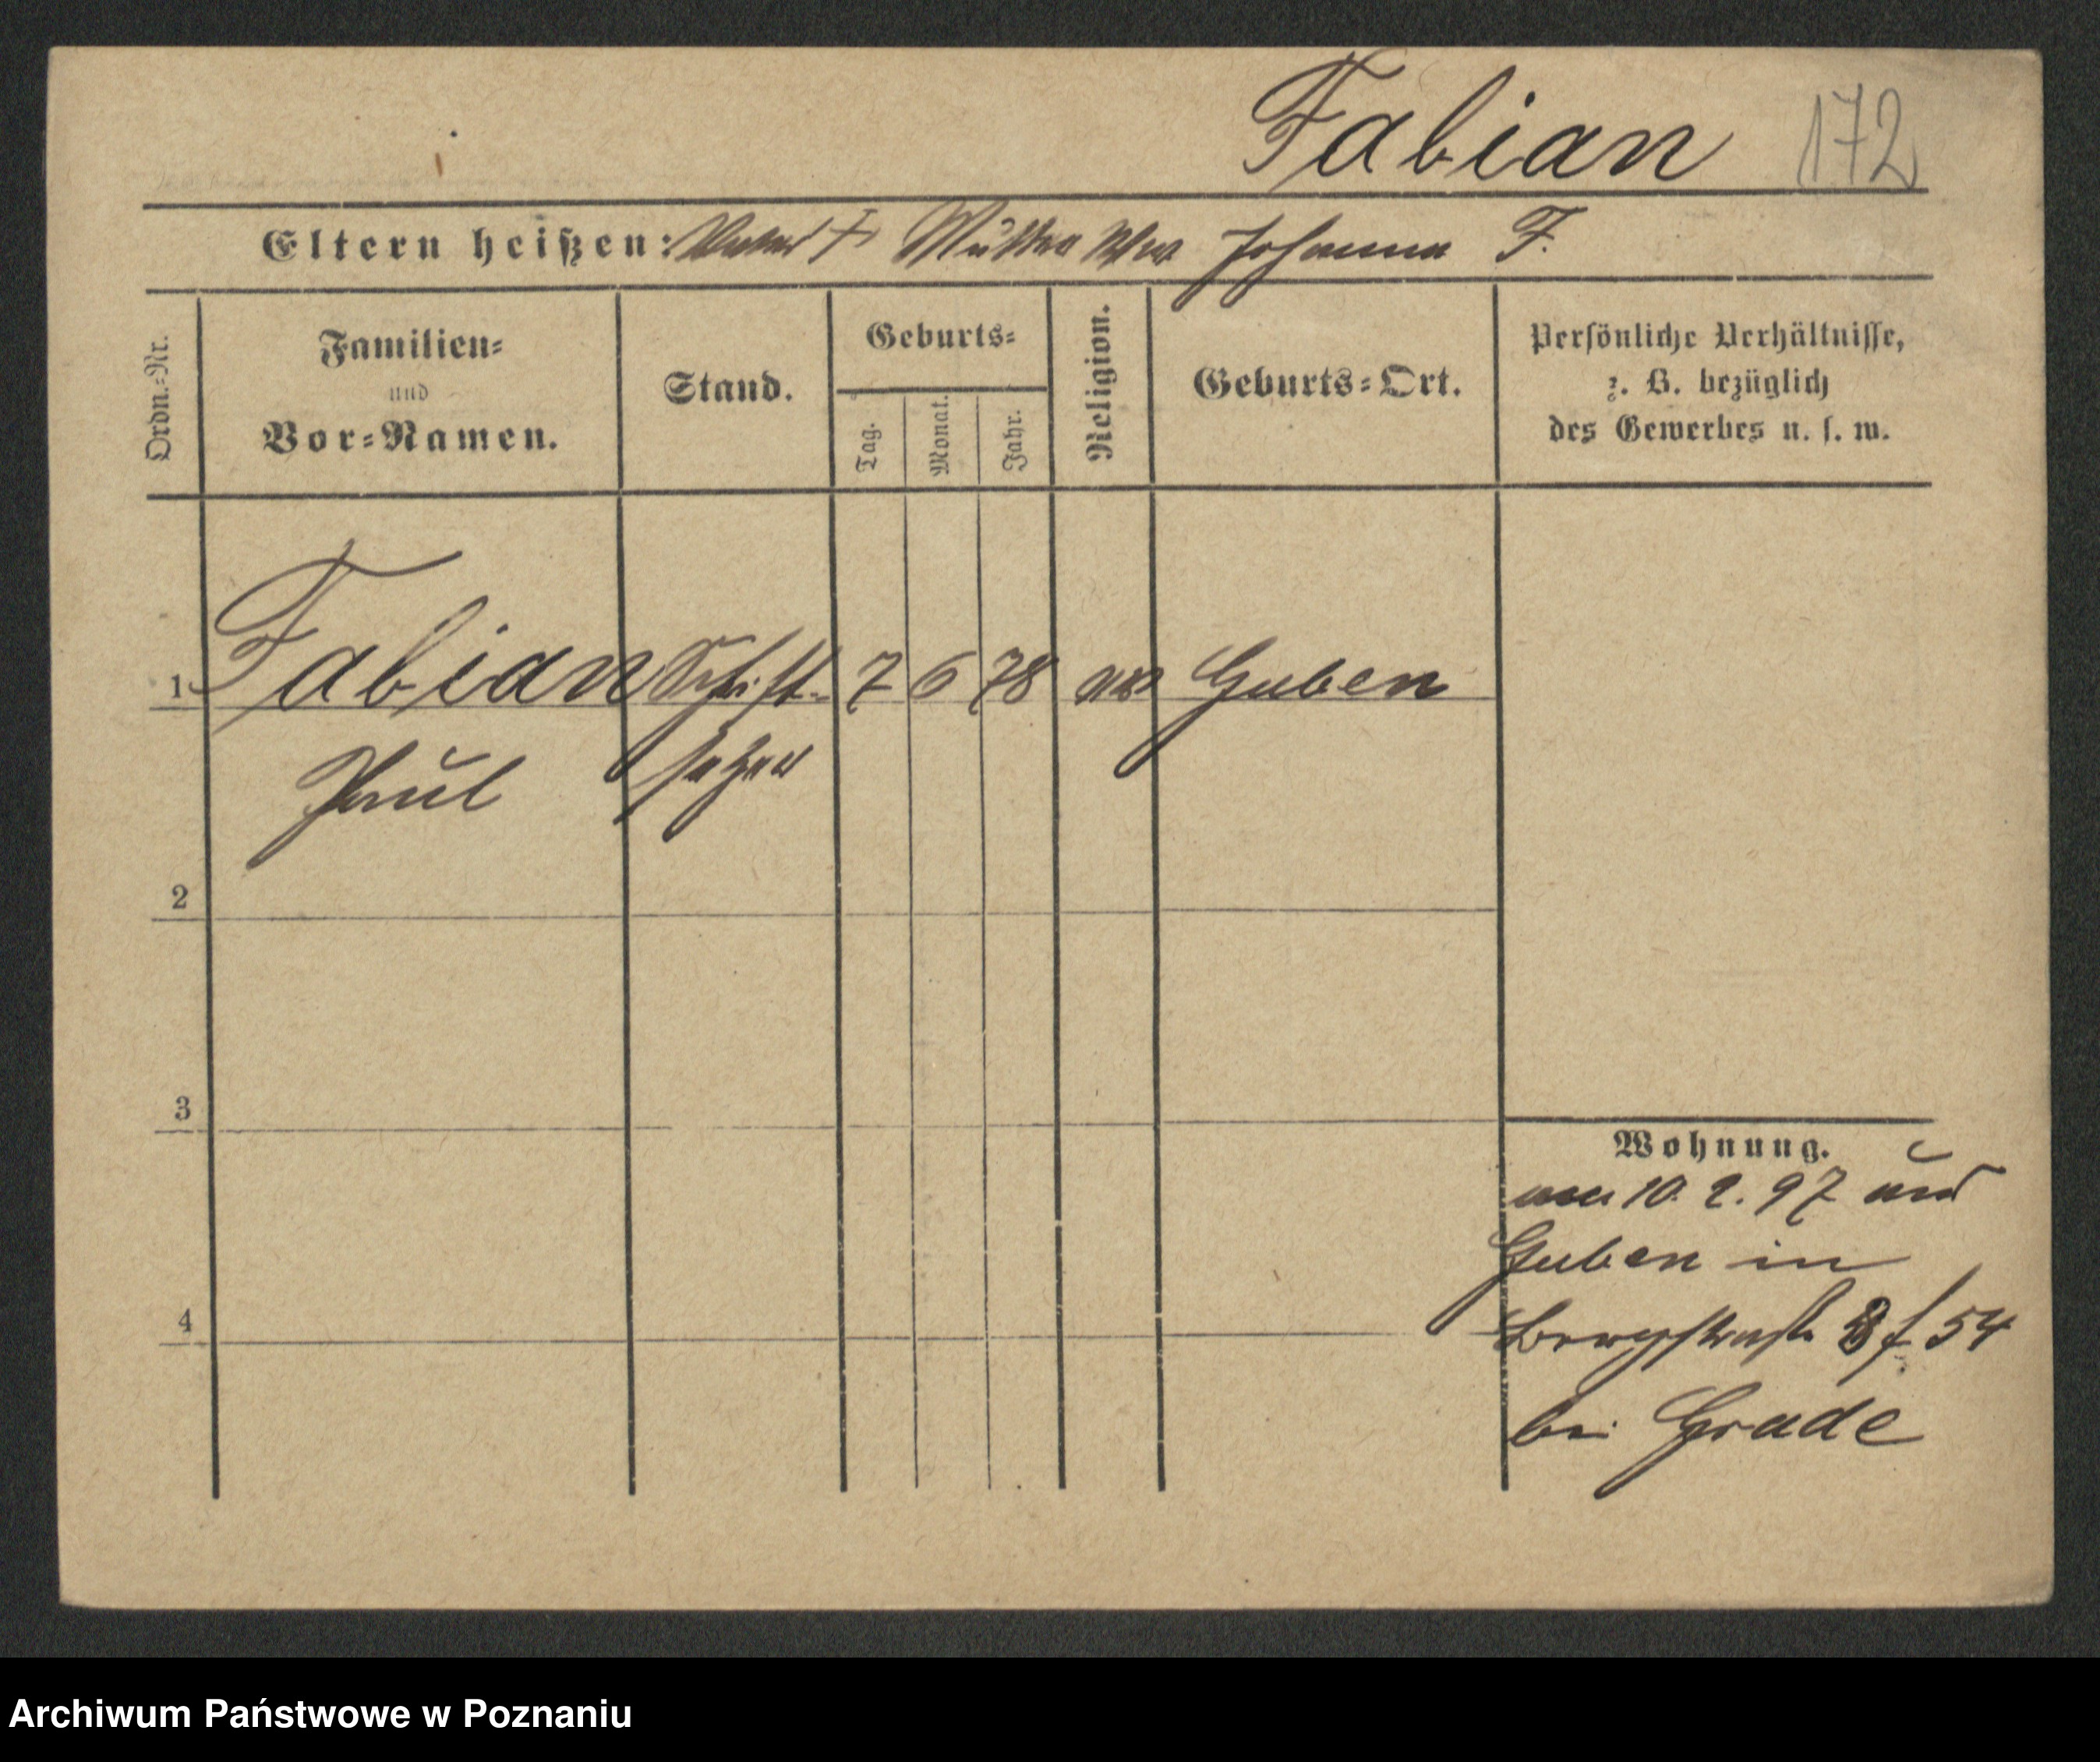 Fabian 172
Eltern heißen: Vater † Mutter Wwe Johanna F.
Ordn.=Nr.
Familien=
und
Vor=Namen.
Stand.
Geburts=
Tag.
Monat.
Jahr.
Religion.
Geburts=Ort.
Persönliche Verhältnisse,
z. B. bezüglich
des Gewerbes u. s. w.
1 Fabian Schrift- 7 6 78 Guben
Paul setzer
2
3
4
Wohnung.
10. 2. 97 aus
Guben in
54
bei Grade
Archiwum Państwowe w Poznaniu